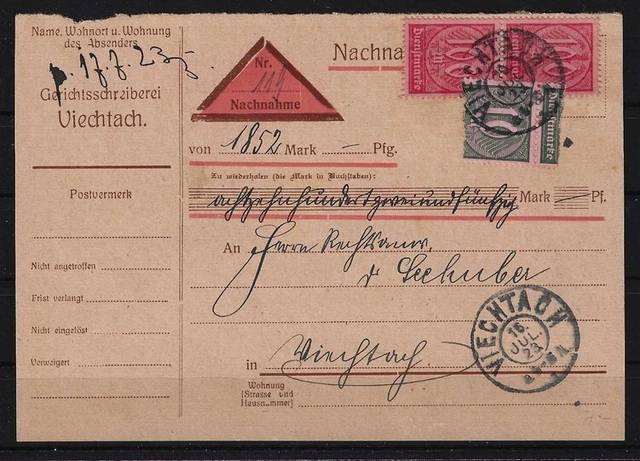 Name, Wohnort u. Wohnung
des Absenders
p. 17.7.23
Gerichtsschreiberei
Viechtach.
Postvermerk
Nicht angetroffen
Frist verlangt
Nicht eingelöst
Verweigert
Nr.
119
Nachnahme
Nachna
100
Dienstmarke
100
Dienstmarke
10
Dienstmarke
VIECHTACH
von 1852 Mark — Pfg.
Zu wiederholen (die Mark in Buchstaben):
achtzehnhundertzweiundfünfzig Mark — Pf.
An Herrn Rechtsanw.
Seehuber
in Viechtach
Wohnung
(Straße und
Hausnummer)
VIECHTACH
16.
JUL.
23.